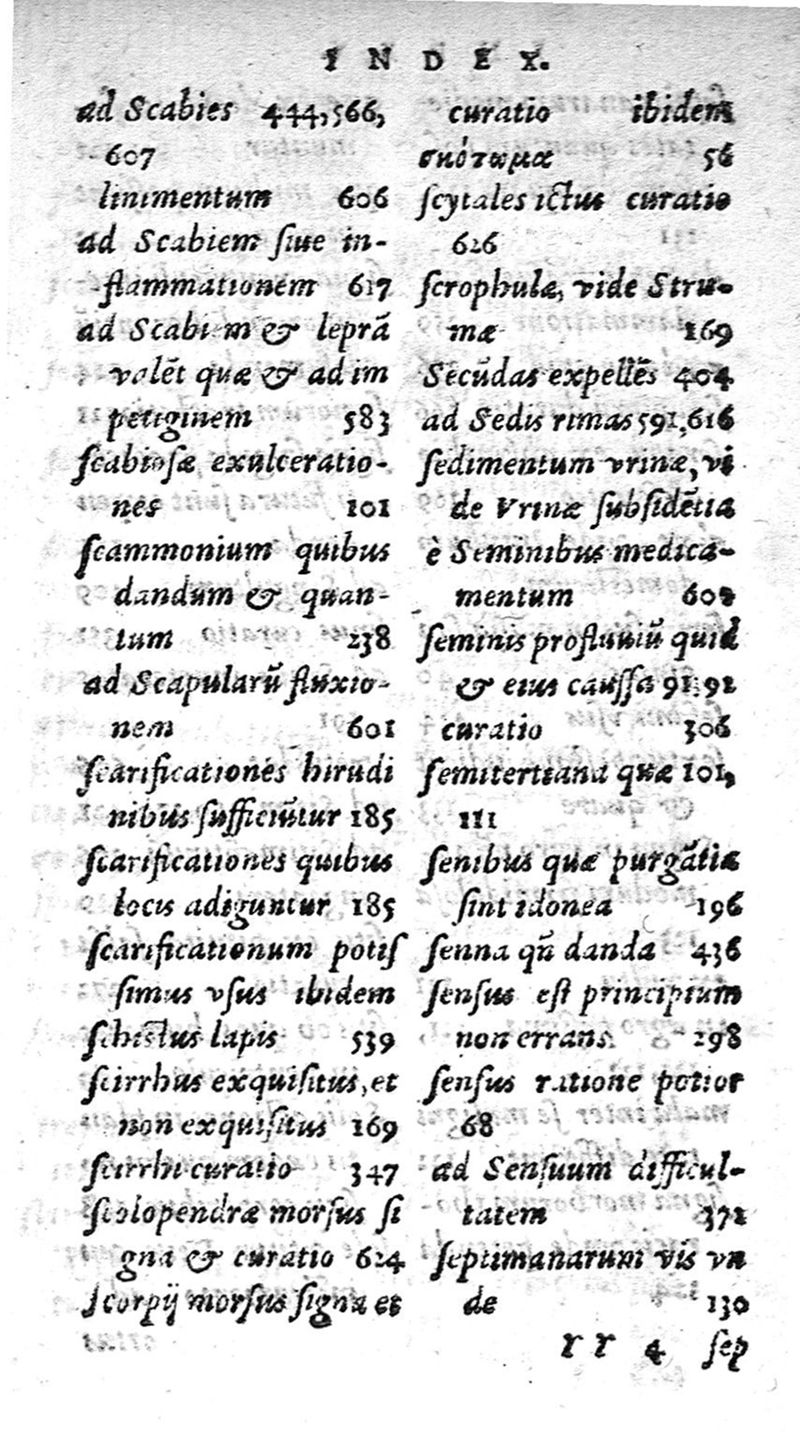 INDEX.
ad Scabies 444,566,
607
linimentum 606
ad Scabiem ſiue in-
flammationem 617
ad Scabiem & leprã
valẽt quæ & ad im
petiginem 583
ſcabioſæ exulceratio-
nes 101
ſcammonium quibus
dandum & quan-
tum 238
ad Scapularũ fluxio-
nem 601
ſcarificationes hirudi
nibus ſufficiũtur 185
ſcarificationes quibus
locis adiguntur 185
ſcarificationum potiſ
ſimus vſus ibidem
ſchiſtus lapis 539
ſcirrhus exquiſitus, et
non exquiſitus 169
ſcirrhi curatio 347
ſcolopendræ morſus ſi
gna & curatio 624
ſcorpij morſus ſigna et
curatio ibidem
σκότωμα 56
ſcytales ictus curatio
626
ſcrophulæ, vide Stru-
mæ 169
Secũdas expellẽs 404
ad Sedis rimas 591,616
ſedimentum vrinæ, vi
de Vrinæ ſubſidẽtia
è Seminibus medica-
mentum
ſeminis profluuiũ quid
& eius cauſſa 91.92
curatio 306
ſemitertiana quæ 101,
111
ſenibus quæ purgãtia
ſint idonea 196
ſenna qñ danda 436
ſenſus eſt principium
non errans. 298
ſenſus ratione potior
68
ad Senſuum difficul-
tatem 372
ſeptimanarum vis vn
de 130
rr 4 ſep